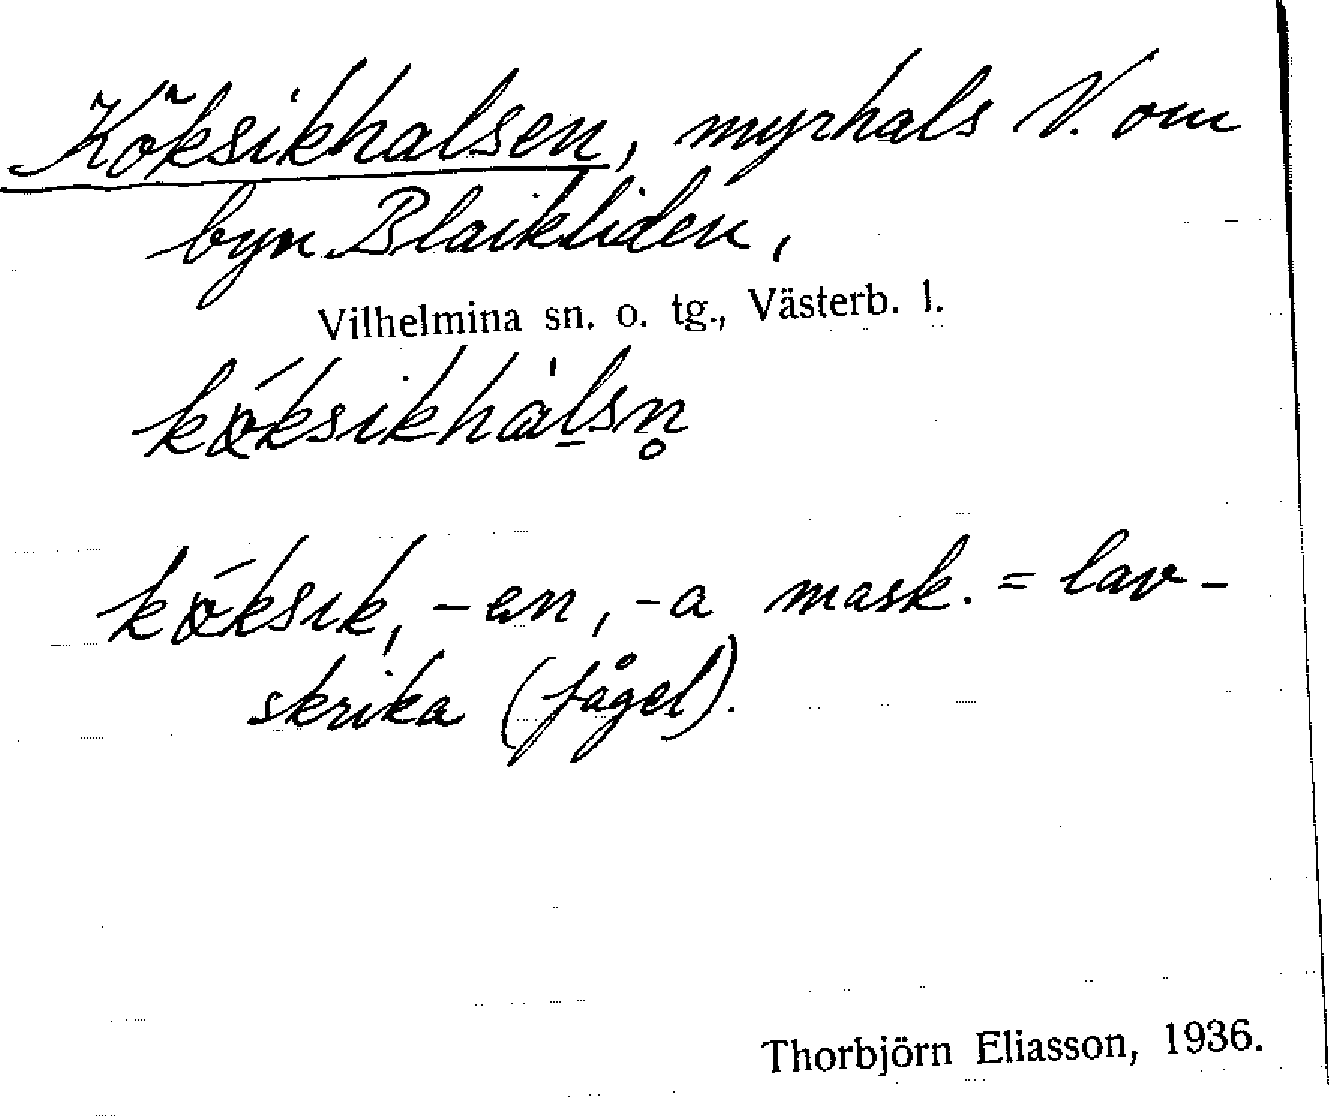 Köksikhalsen, myrhals V. om
byn Blaikliden,
Vilhelmina sn. o. tg., Västerb. l.
kǿksikhàl̠sn̥
kǿksik, -en, -a mask. = lav-
skrika (fågel).
Thorbjörn Eliasson, 1936.